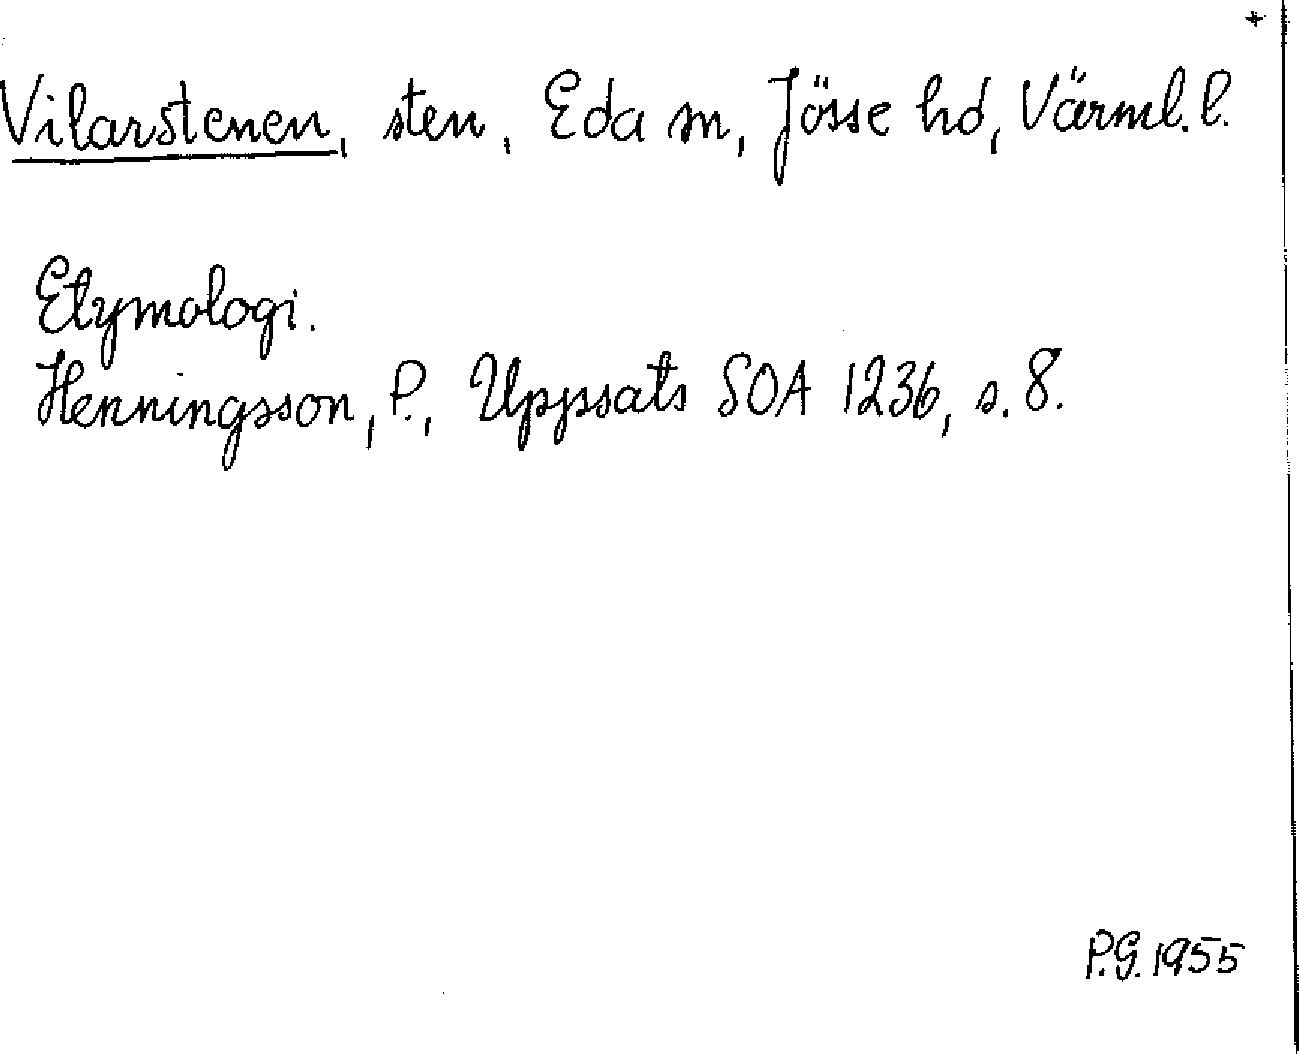 +
Vilarstenen, sten, Eda sn, Jösse hd, Värml. l.
Etymologi.
Henningsson, P., Uppsats SOA 1236, s. 8.
P.G. 1955